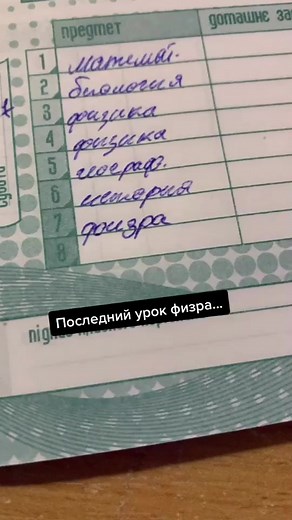 предмет домашнє за
1 математ.
2 биология
3 физика
4 физика
5 географ.
6 история
7 физра
8
Последний урок физра...